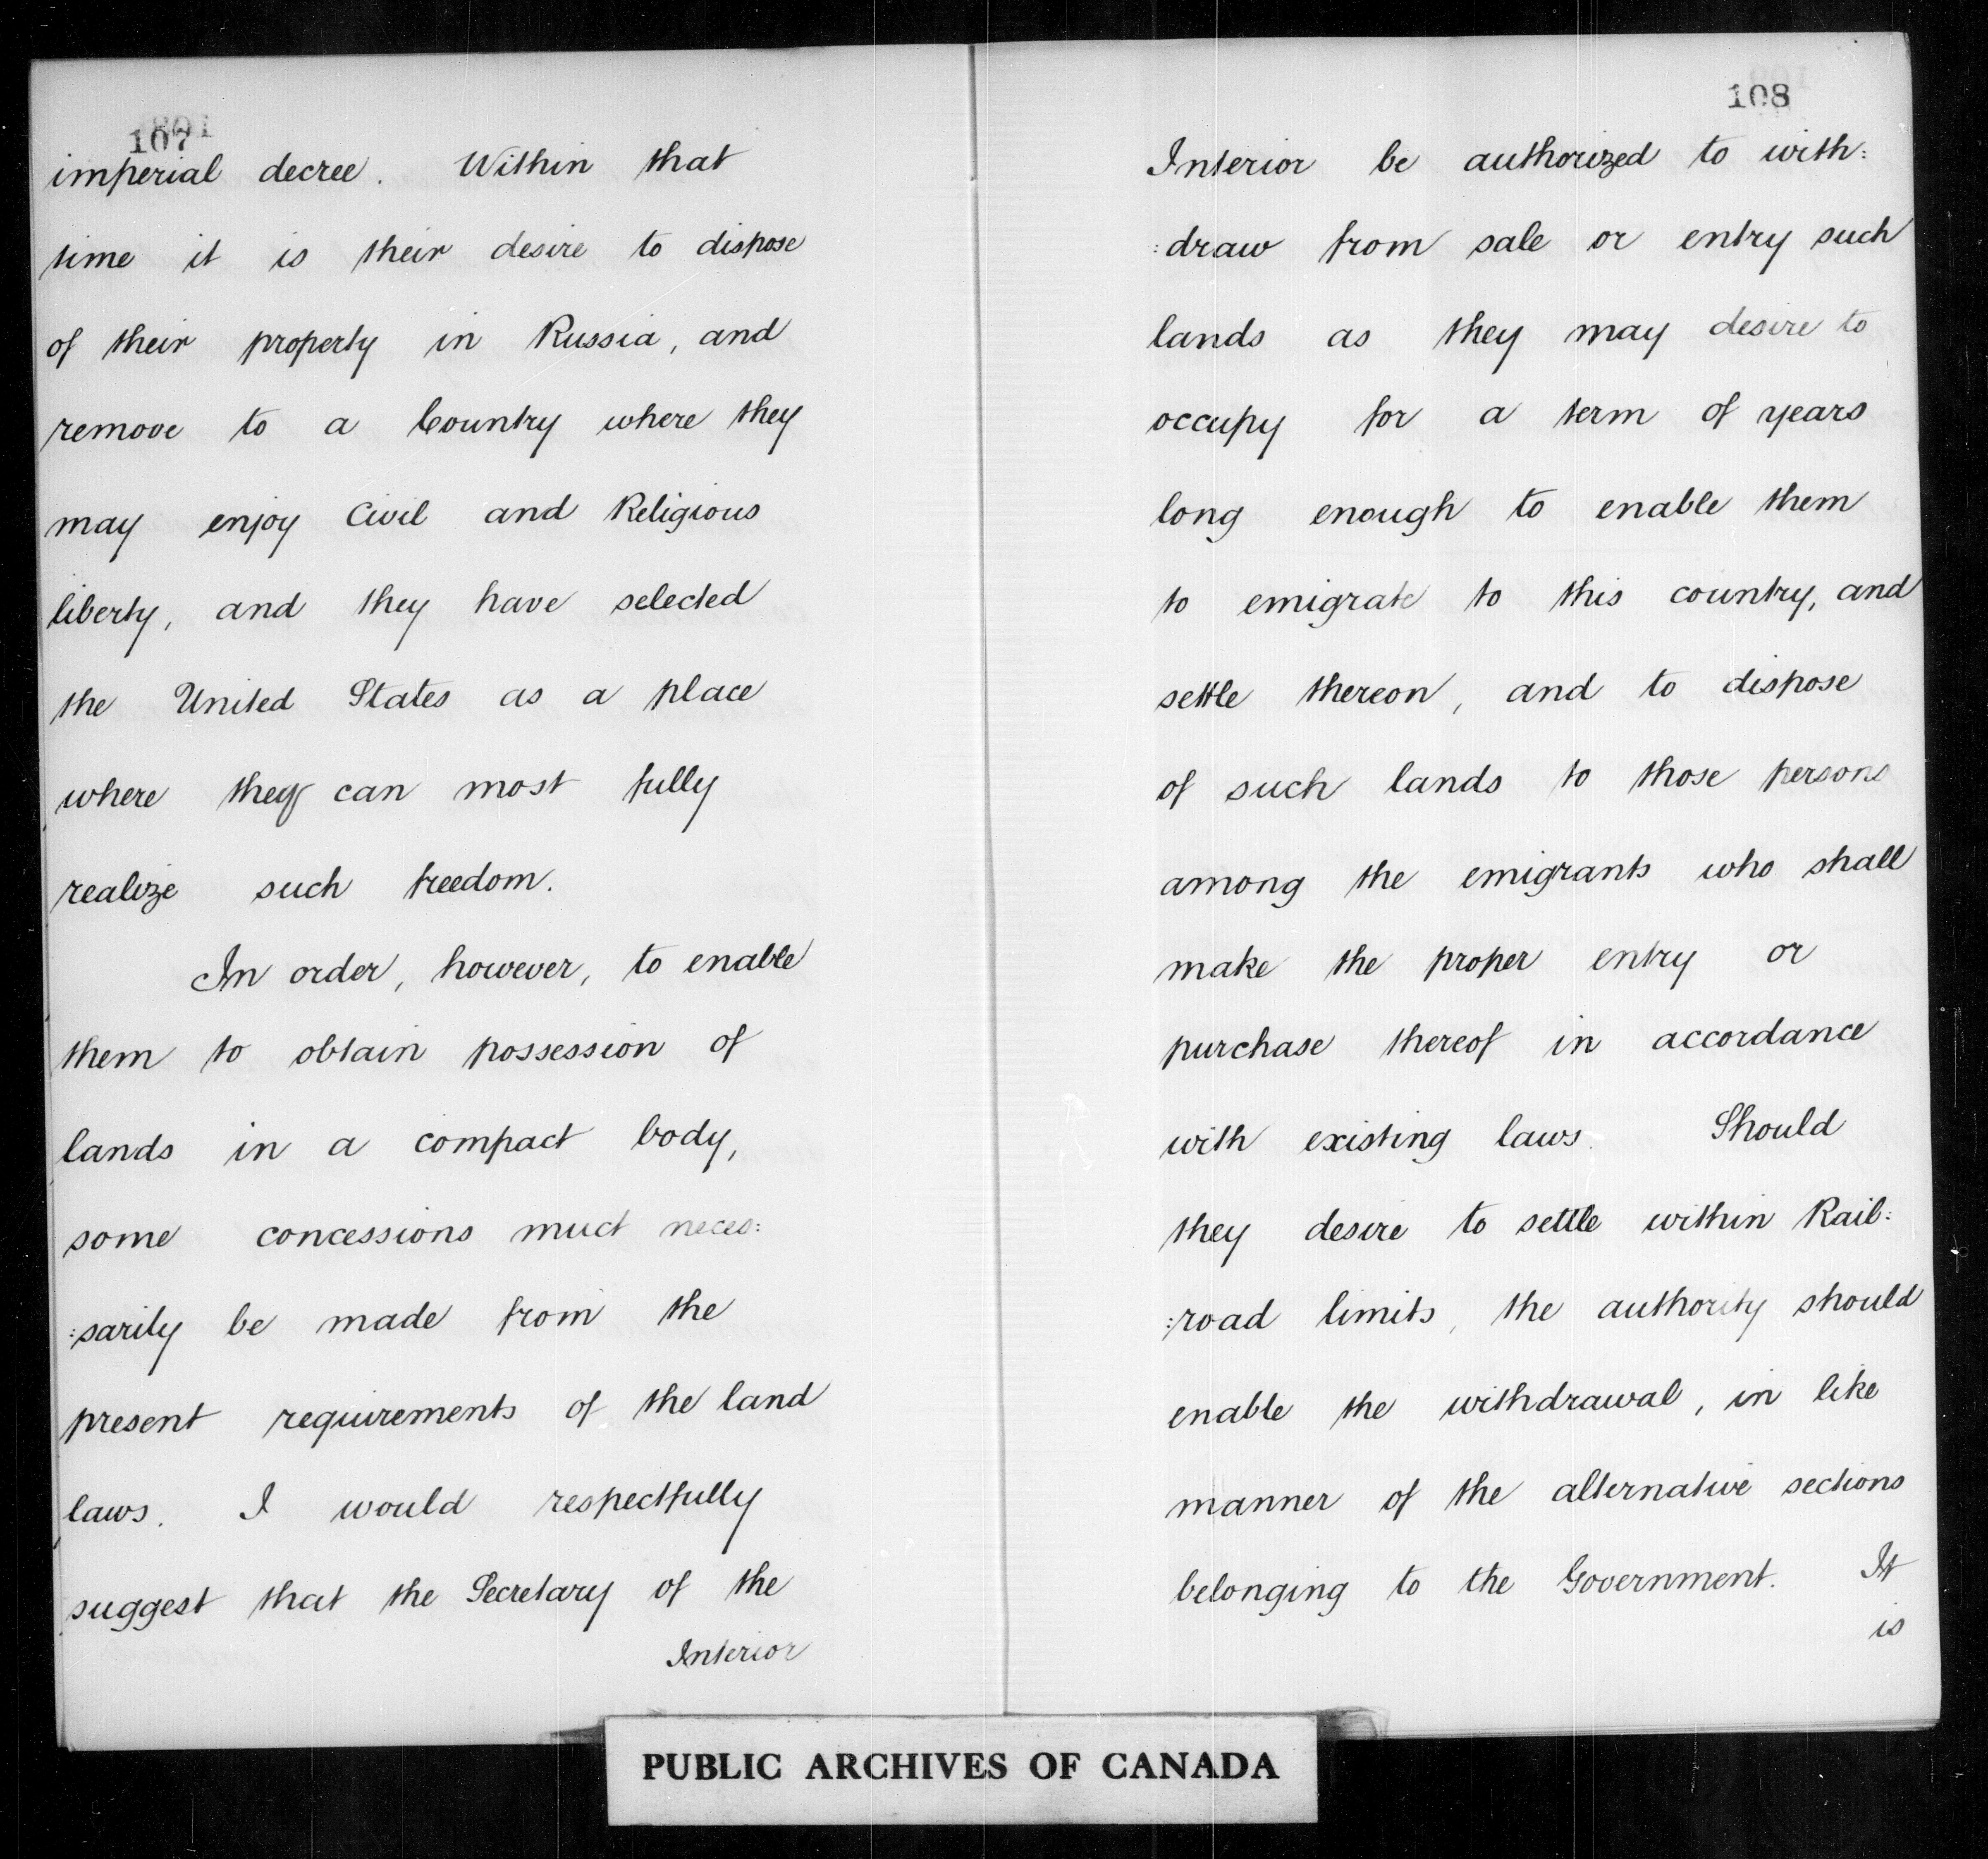 107
imperial decree. Within that
time it is their desire to dispose
of their property in Russia, and
remove to a Country where they
may enjoy Civil and Religious
liberty, and they have selected
the United States as a place
where they can most fully
realize such freedom.
In order, however, to enable
them to obtain possession of
lands in a compact body,
some concessions must neces:
:sarily be made from the
present requirements of the land
laws. I would respectfully
suggest that the Secretary of the
Interior
108
Interior be authorized to with:
:draw from sale or entry such
lands as they may desire to
occupy for a term of years
long enough to enable them
to emigrate to this country, and
settle thereon, and to dispose
of such lands to those persons
among the emigrants who shall
make the proper entry or
purchase thereof in accordance
with existing laws. Should
they desire to settle within Rail:
:road limits, the authority should
enable the withdrawal, in like
manner of the alternative sections
belonging to the Government. It
is
PUBLIC ARCHIVES OF CANADA